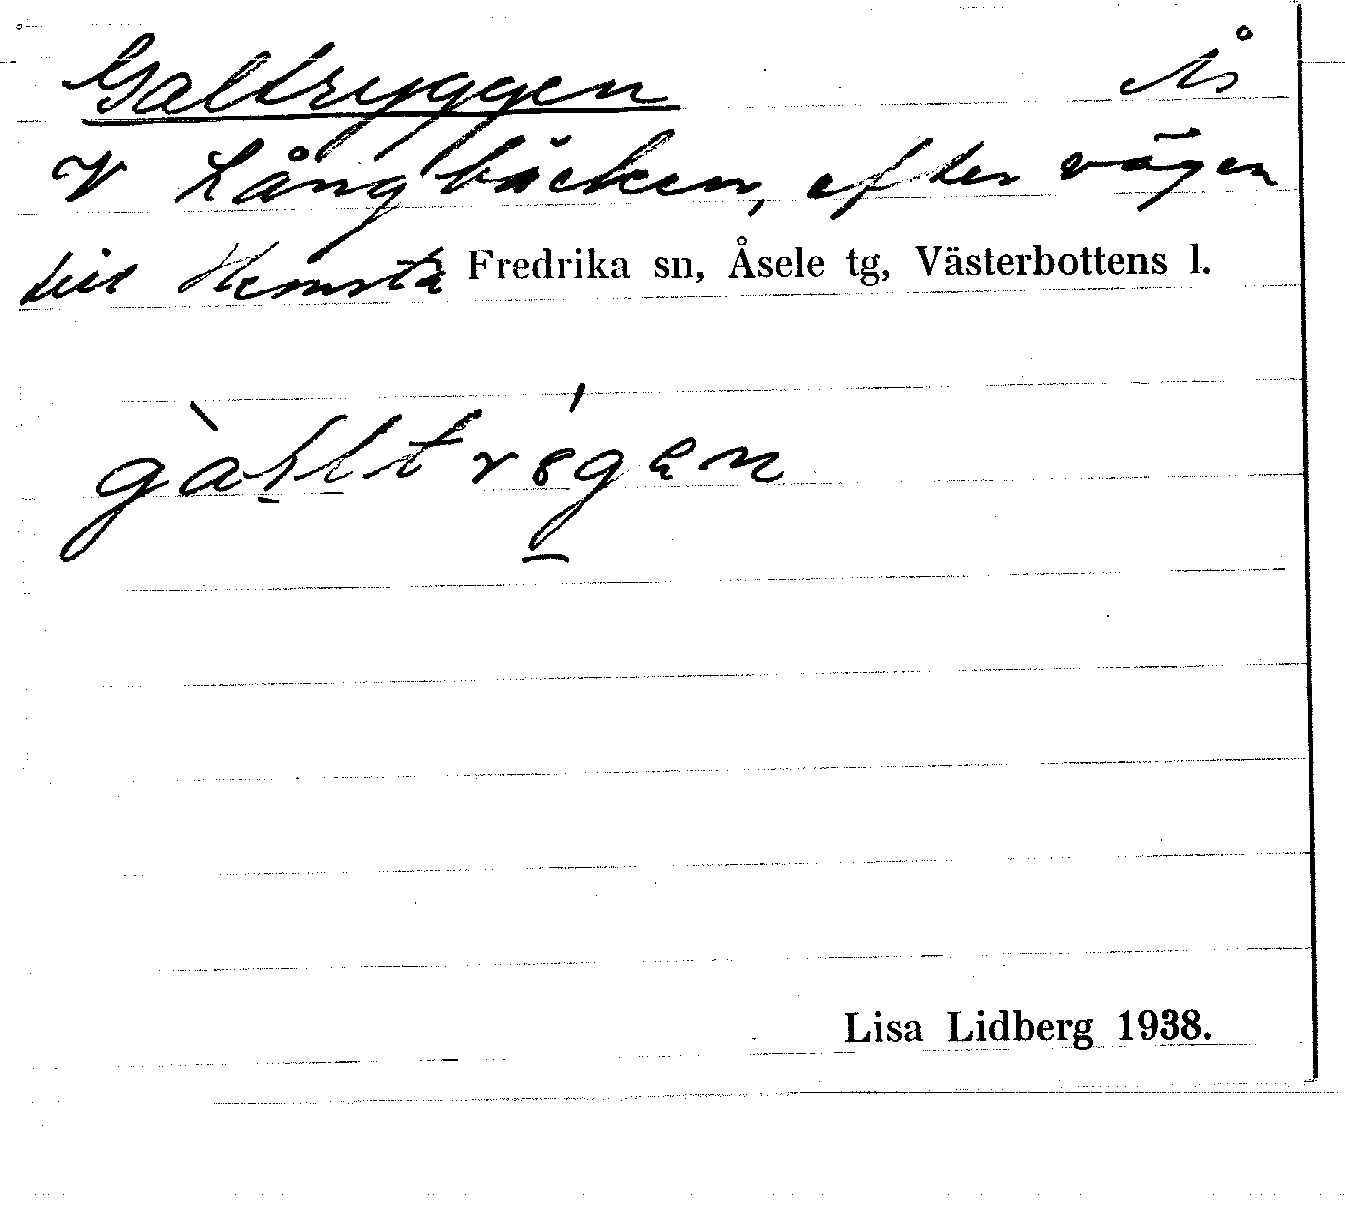 Galtryggen Ås
V Långbäcken, efter vägen
till Hemsta Fredrika sn, Åsele tg, Västerbottens l.
Lisa Lidberg 1938.